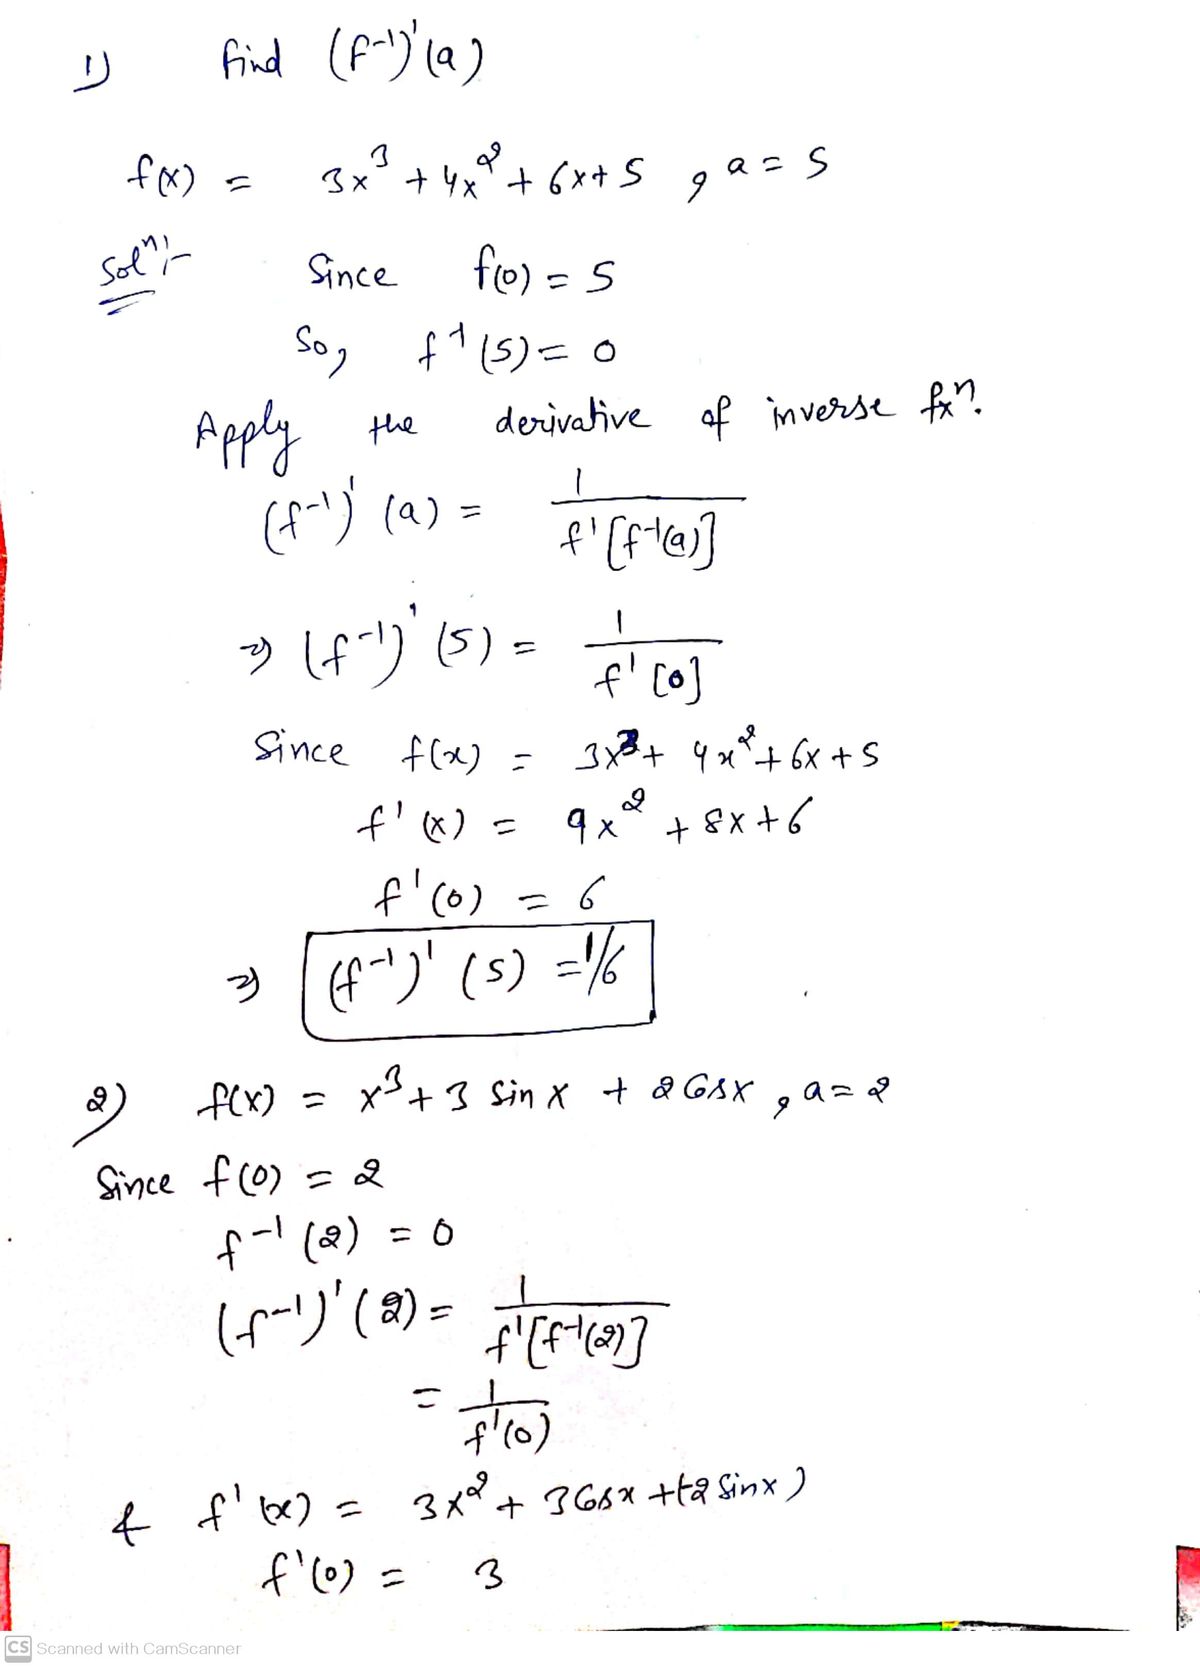 1) find (f⁻¹)'(a)
f(x) = 3x³ + 4x² + 6x + 5 , a = 5
Solⁿ:- Since f(0) = 5
So, f⁻¹(5) = 0
Apply the derivative of inverse fxⁿ.
(f⁻¹)'(a) = 1 / f'[f⁻¹(a)]
⇒ (f⁻¹)'(5) = 1 / f'[0]
Since f(x) = 3x³ + 4x² + 6x + 5
f'(x) = 9x² + 8x + 6
f'(0) = 6
⇒ (f⁻¹)'(5) = 1/6
2) f(x) = x³ + 3 Sin x + 2 Cosx , a = 2
Since f(0) = 2
f⁻¹(2) = 0
(f⁻¹)'(2) = 1 / f'[f⁻¹(2)]
= 1 / f'(0)
& f'(x) = 3x² + 3 Cosx + (-2 Sinx)
f'(0) = 3
CS Scanned with CamScanner